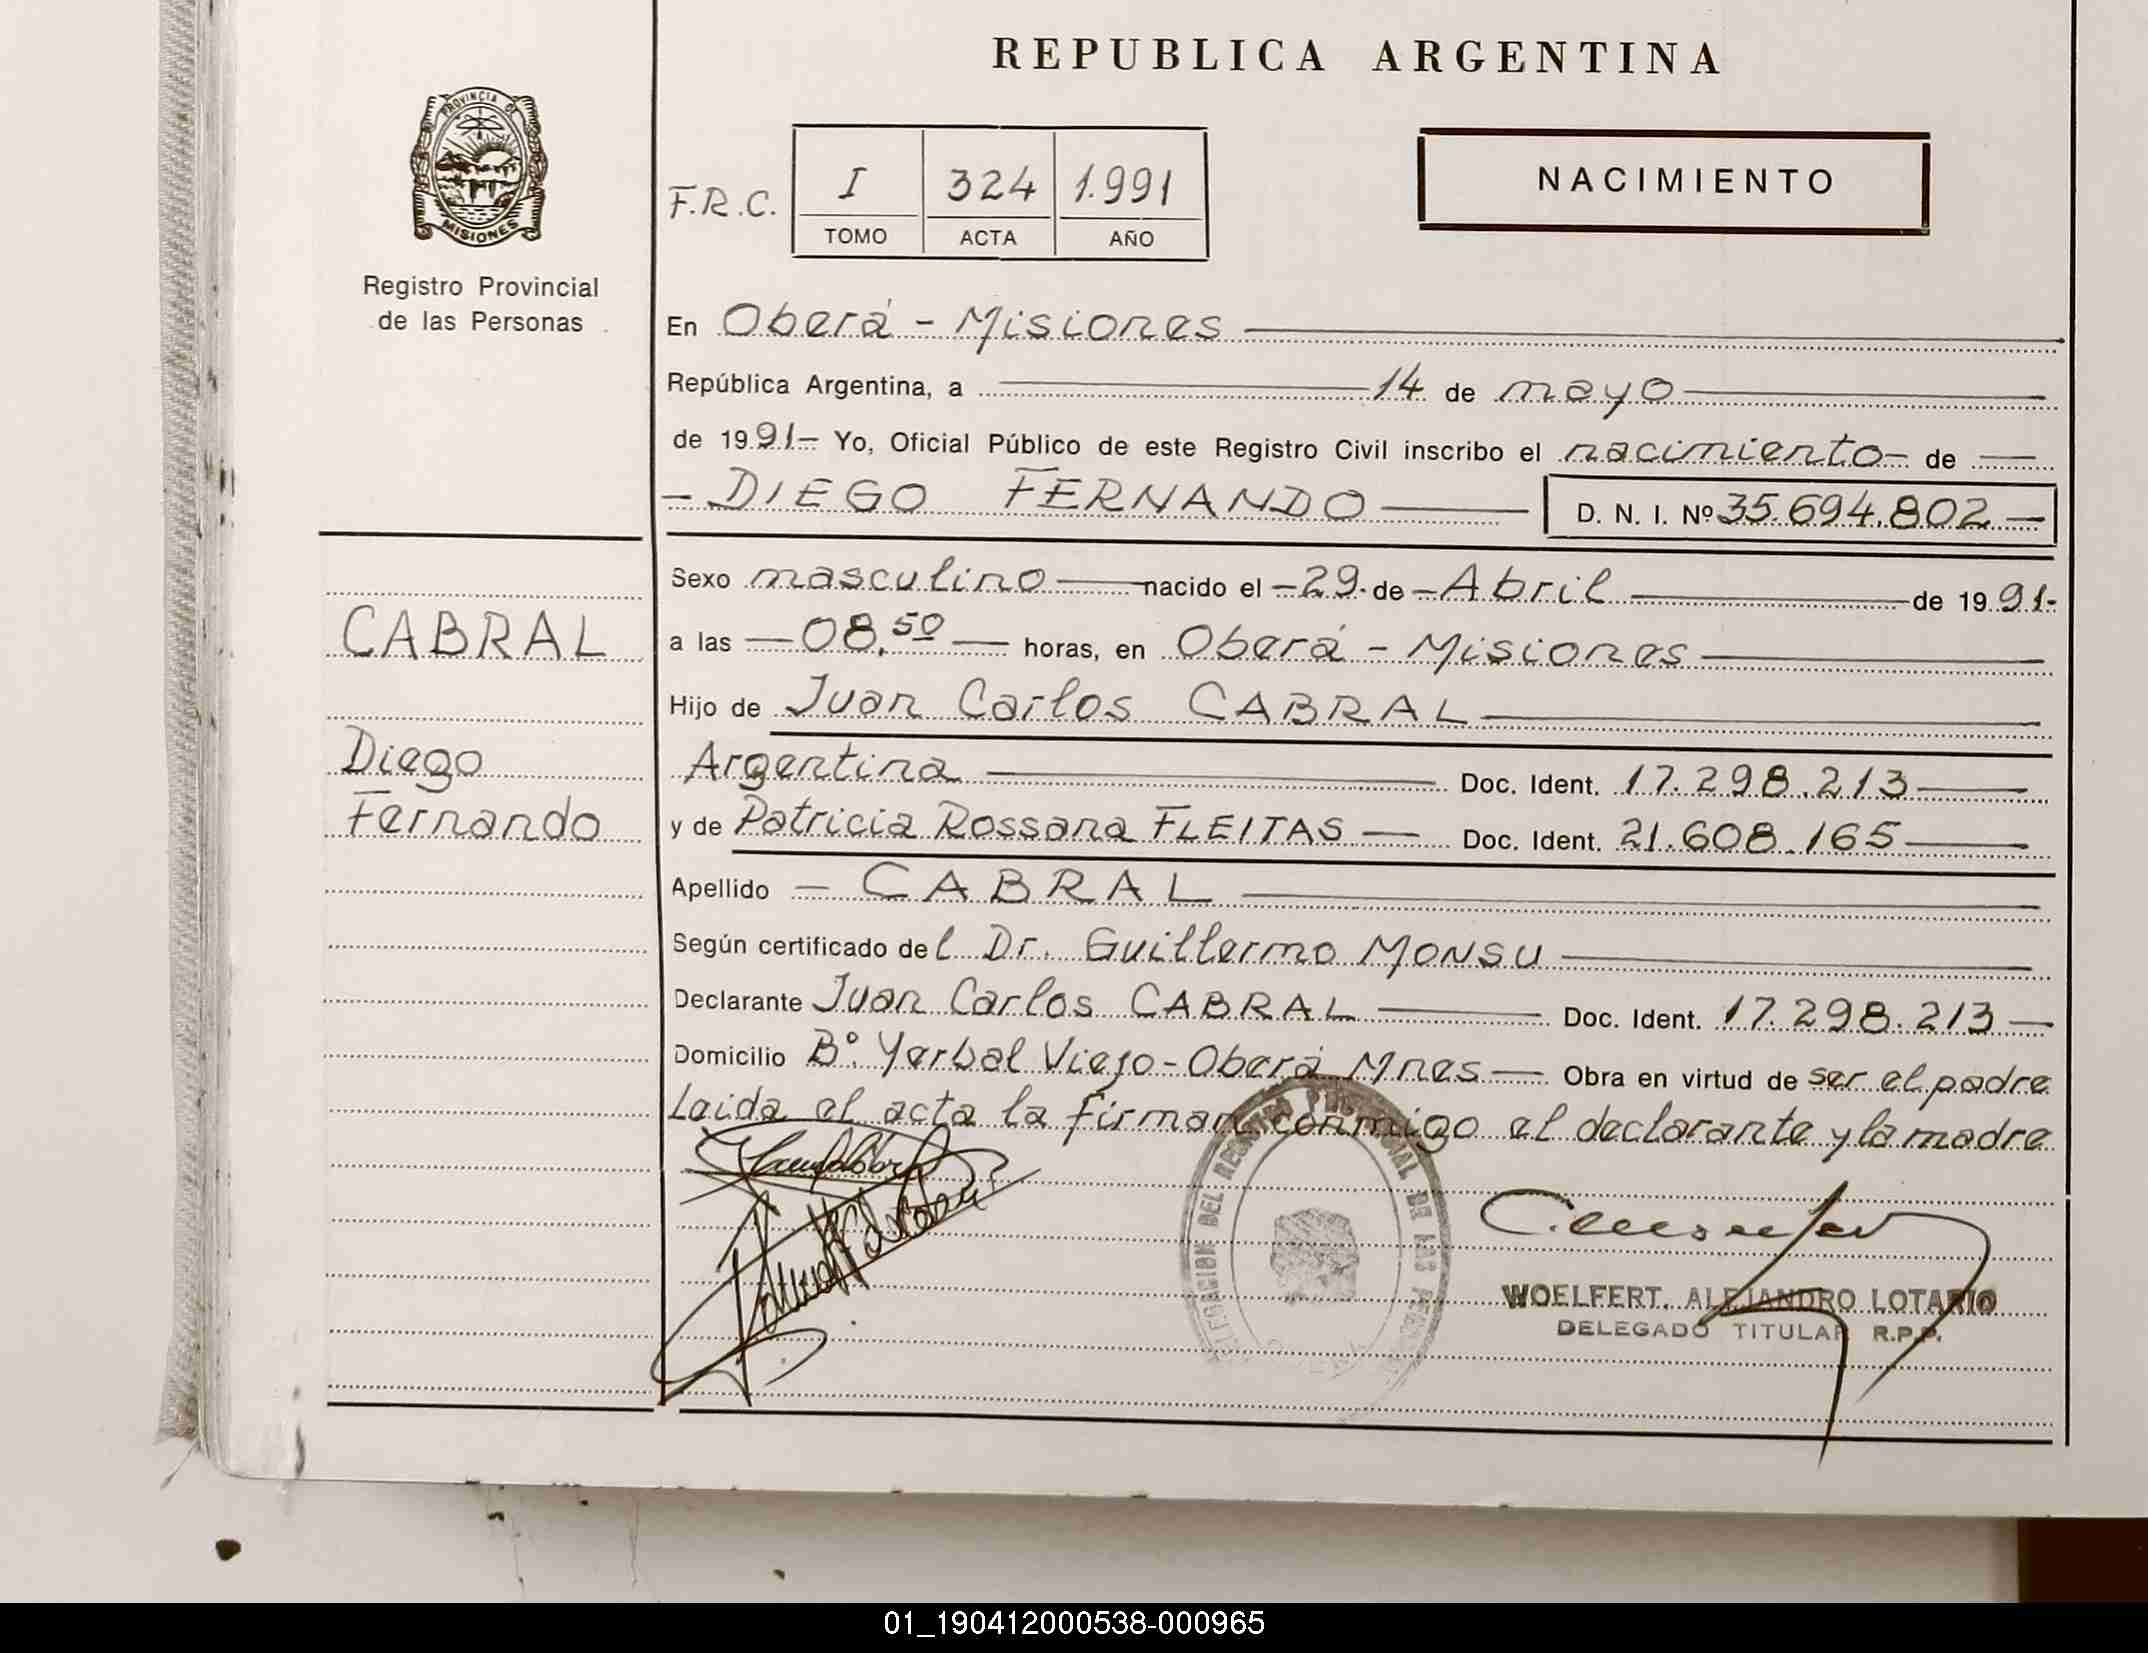 REPUBLICA ARGENTINA
PROVINCIA DE
MISIONES
Registro Provincial
de las Personas
F.R.C.
I 324 1.991
TOMO ACTA AÑO
NACIMIENTO
En Oberá - Misiones
República Argentina, a 14 de mayo
de 1991- Yo, Oficial Público de este Registro Civil inscribo el nacimiento- de
- DIEGO FERNANDO
D. N. I. Nº 35.694.802 -
Sexo masculino nacido el - 29 de - Abril de 1991-
CABRAL
a las - 08,50 - horas, en Oberá - Misiones
Hijo de Juan Carlos CABRAL
Diego
Argentina Doc. Ident. 17.298.213
Fernando
y de Patricia Rossana FLEITAS - Doc. Ident. 21.608.165
Apellido - CABRAL
Según certificado del Dr. Guillermo MONSU
Declarante Juan Carlos CABRAL Doc. Ident. 17.298.213 -
Domicilio Bº. Yerbal Viejo - Oberá Mnes - Obra en virtud de ser el padre
Leida el acta la firman conmigo el declarante y la madre
DELEGACION DEL REGISTRO PROVINCIAL DE LAS PERSONAS
WOELFERT, ALEJANDRO LOTARIO
DELEGADO TITULAR R.P.P.
01_190412000538-000965